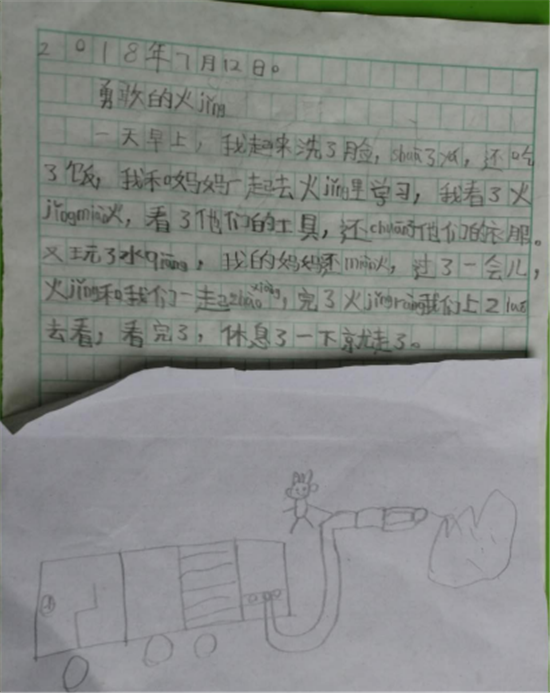 2018年7月12日。
勇敢的火jǐng
一天早上，我起来洗了脸，shuā了牙，还吃
了饭，我和妈妈一起去火jǐng里学习，我看了火
jǐngmiè火，看了他们的工具，还chuān了他们的衣服。
又玩了水qiāng，我的妈妈还miè火，过了一会儿，
火jǐng和我们一起zhào xiàng，完了火jǐngràng我们上2lóu
去看，看完了，休息了一下就走了。